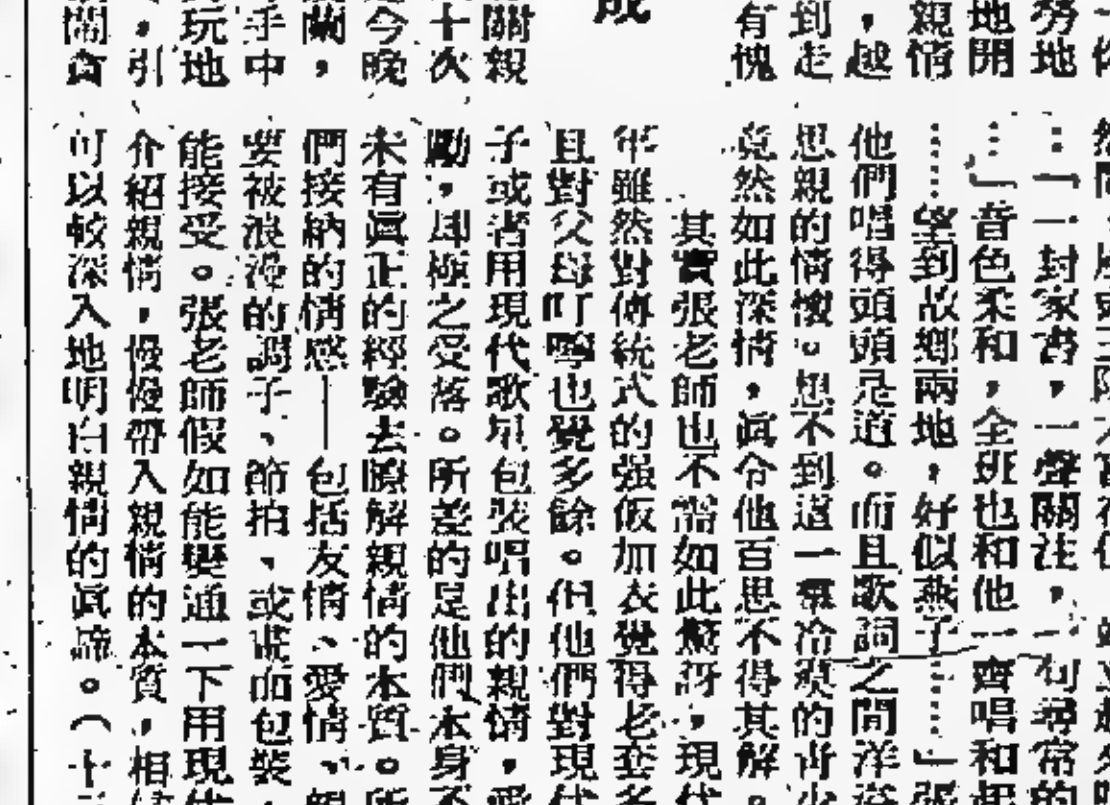 勞地
地開
親情
，越
到走
有愧
成
關親
十次
今晚
蘭，
手中
玩地
，引
…一一封家書，一聲關注，一句尋常的
…」音色柔和，全班也和他一齊唱和
……望到故鄉兩地，好似燕子……」張
他們唱得頭頭是道。而且歌詞之間洋
思親的情懷。想不到這一羣冷漠的青少
竟然如此深情，眞令他百思不得其解。
其實張老師也不需如此驚訝，現代
年雖然對傳統式的强飯加衣覺得老套
且對父母叮嚀也覺多餘。但他們對現代
子或者用現代歌星包裝唱出的親情，
勵，却極之受落。所差的是他們本身不
未有眞正的經驗去瞭解親情的本質。所
們接納的情感——包括友情、愛情、親
要被浪漫的調子、節拍、或畫面包裝，
能接受。張老師假如能變通一下用現代
介紹親情，慢慢帶入親情的本質，相
可以較深入地明白親情的眞諦。（十